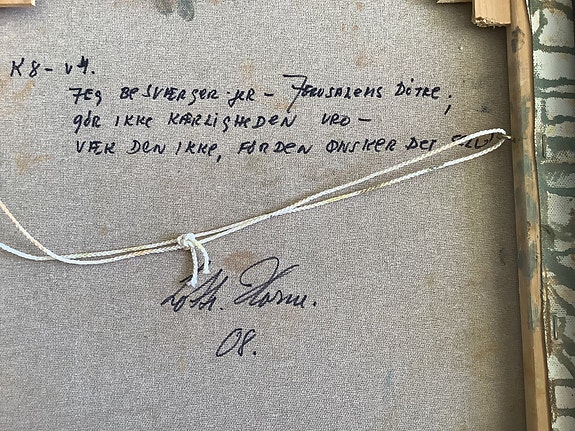 K8-v4.
JEG BESVÆRGER JER - JERUSALEMS DØTRE;
GØR IKKE KÆRLIGHEDEN URO -
VÆK DEN IKKE, FØR DEN ØNSKER DET
08.